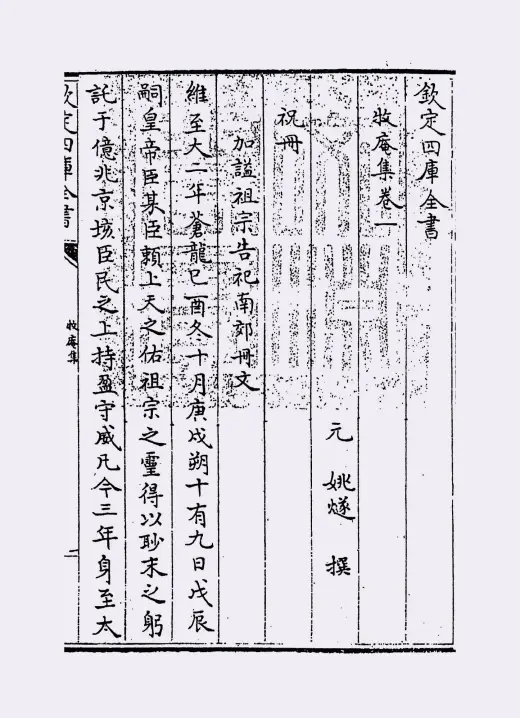 欽定四庫全書
牧庵集卷一
元 姚燧 撰
祝冊
加謚祖宗告祀南郊冊文
維至大二年蒼龍己酉冬十月庚戌朔十有九日戊辰
嗣皇帝臣某臣頼上天之佑祖宗之靈得以眇末之躬
託于億兆京垓臣民之上持盈守成凡今三年身至太
欽定四庫全書
牧庵集
一